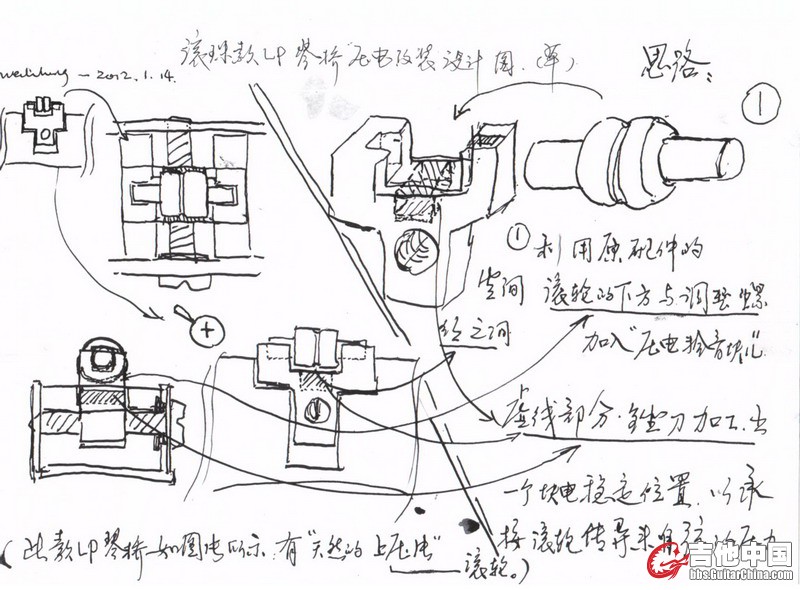 滚珠款LP琴桥"压电改装设计图.(草)
—2012.1.14.
思路:
①
①利用原配件的
空间 滚轮的下方与调整螺
丝之间 加入"压电拾音块儿"
+
虚线部分.锉刀加工出
一个块电稳定位置,以承
接滚轮传导来自弦的压力
(此款LP琴桥-如图片所示.有"天然的上压片"
滚轮。)
吉他中国
bbs.GuitarChina.com